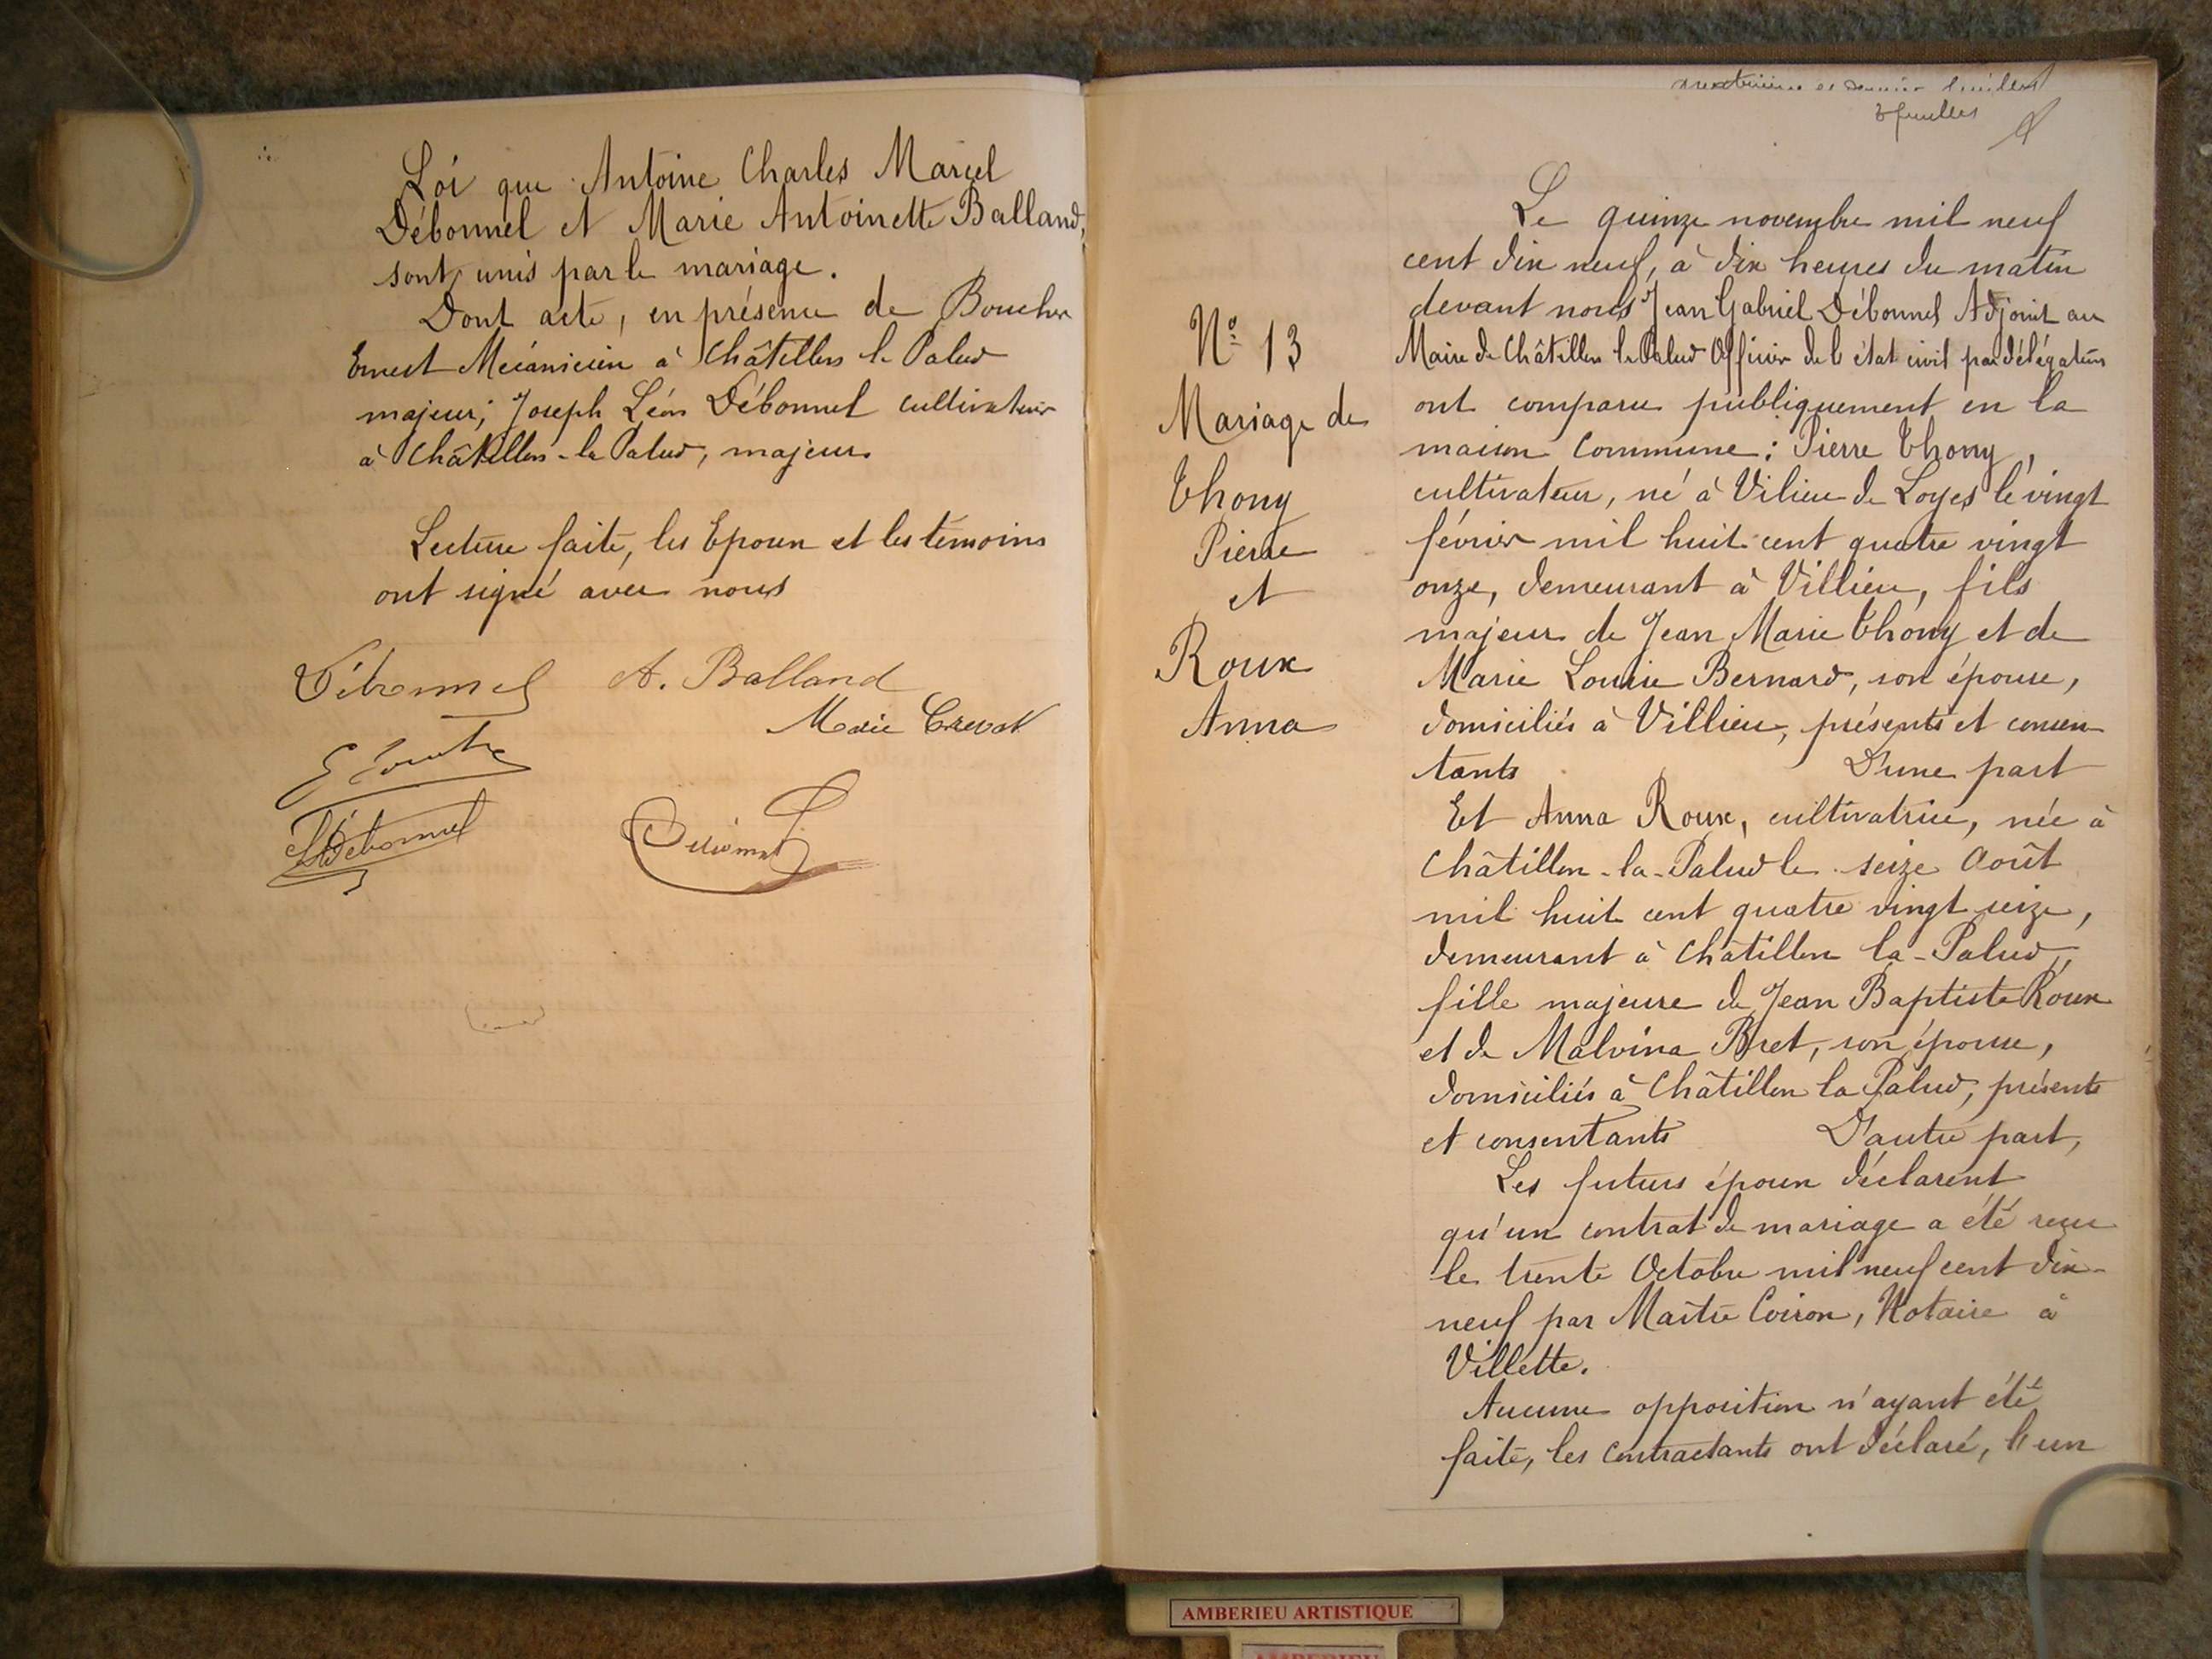 Loi que Antoine Charles Marcel
Débonnel et Marie Antoinette Balland,
sont unis par le mariage.
Dont acte, en présence de Boucher
Ernest Mécanicien à Châtillon la Palud
majeur; Joseph Léon Débonnel cultivateur
à Châtillon-la Palud, majeur.
Lecture faite, les Epoux et les témoins
ont signé avec nous
Débonnel A. Balland
Marie Crevat
Débonnel
et dernier feuillet
feuilles
Le quinze novembre mil neuf
cent dix neuf, à dix heures du matin
devant nous Jean Gabriel Débonnel Adjoint au
Maire de Châtillon la Palud Officier de l'état civil par délégation
ont comparu publiquement en la
maison Commune : Pierre Thony,
cultivateur, né à Vilieu de Loyes le vingt
février mil huit cent quatre vingt
onze, demeurant à Villieu, fils
majeur de Jean Marie Thony et de
Marie Louise Bernard, son épouse,
domiciliés à Villieu, présents et consen
tants D'une part
Et Anna Roux, cultivatrice, née à
Châtillon-la-Palud le seize Août
mil huit cent quatre vingt seize,
demeurant à Châtillon la-Palud,
fille majeure de Jean Baptiste Roux
et de Malvina Bret, son épouse,
domiciliés à Châtillon la Palud, présents
et consentants D'autre part,
Les futurs époux déclarent
qu'un contrat de mariage a été reçu
le trente Octobre mil neuf cent dix-
neuf par Maître Coiron, Notaire à
Villette.
Aucune opposition n'ayant été
faite, les contractants ont déclaré, l'un
N° 13
Mariage de
Thony
Pierre
et
Roux
Anna
AMBERIEU ARTISTIQUE
AMBERIEU